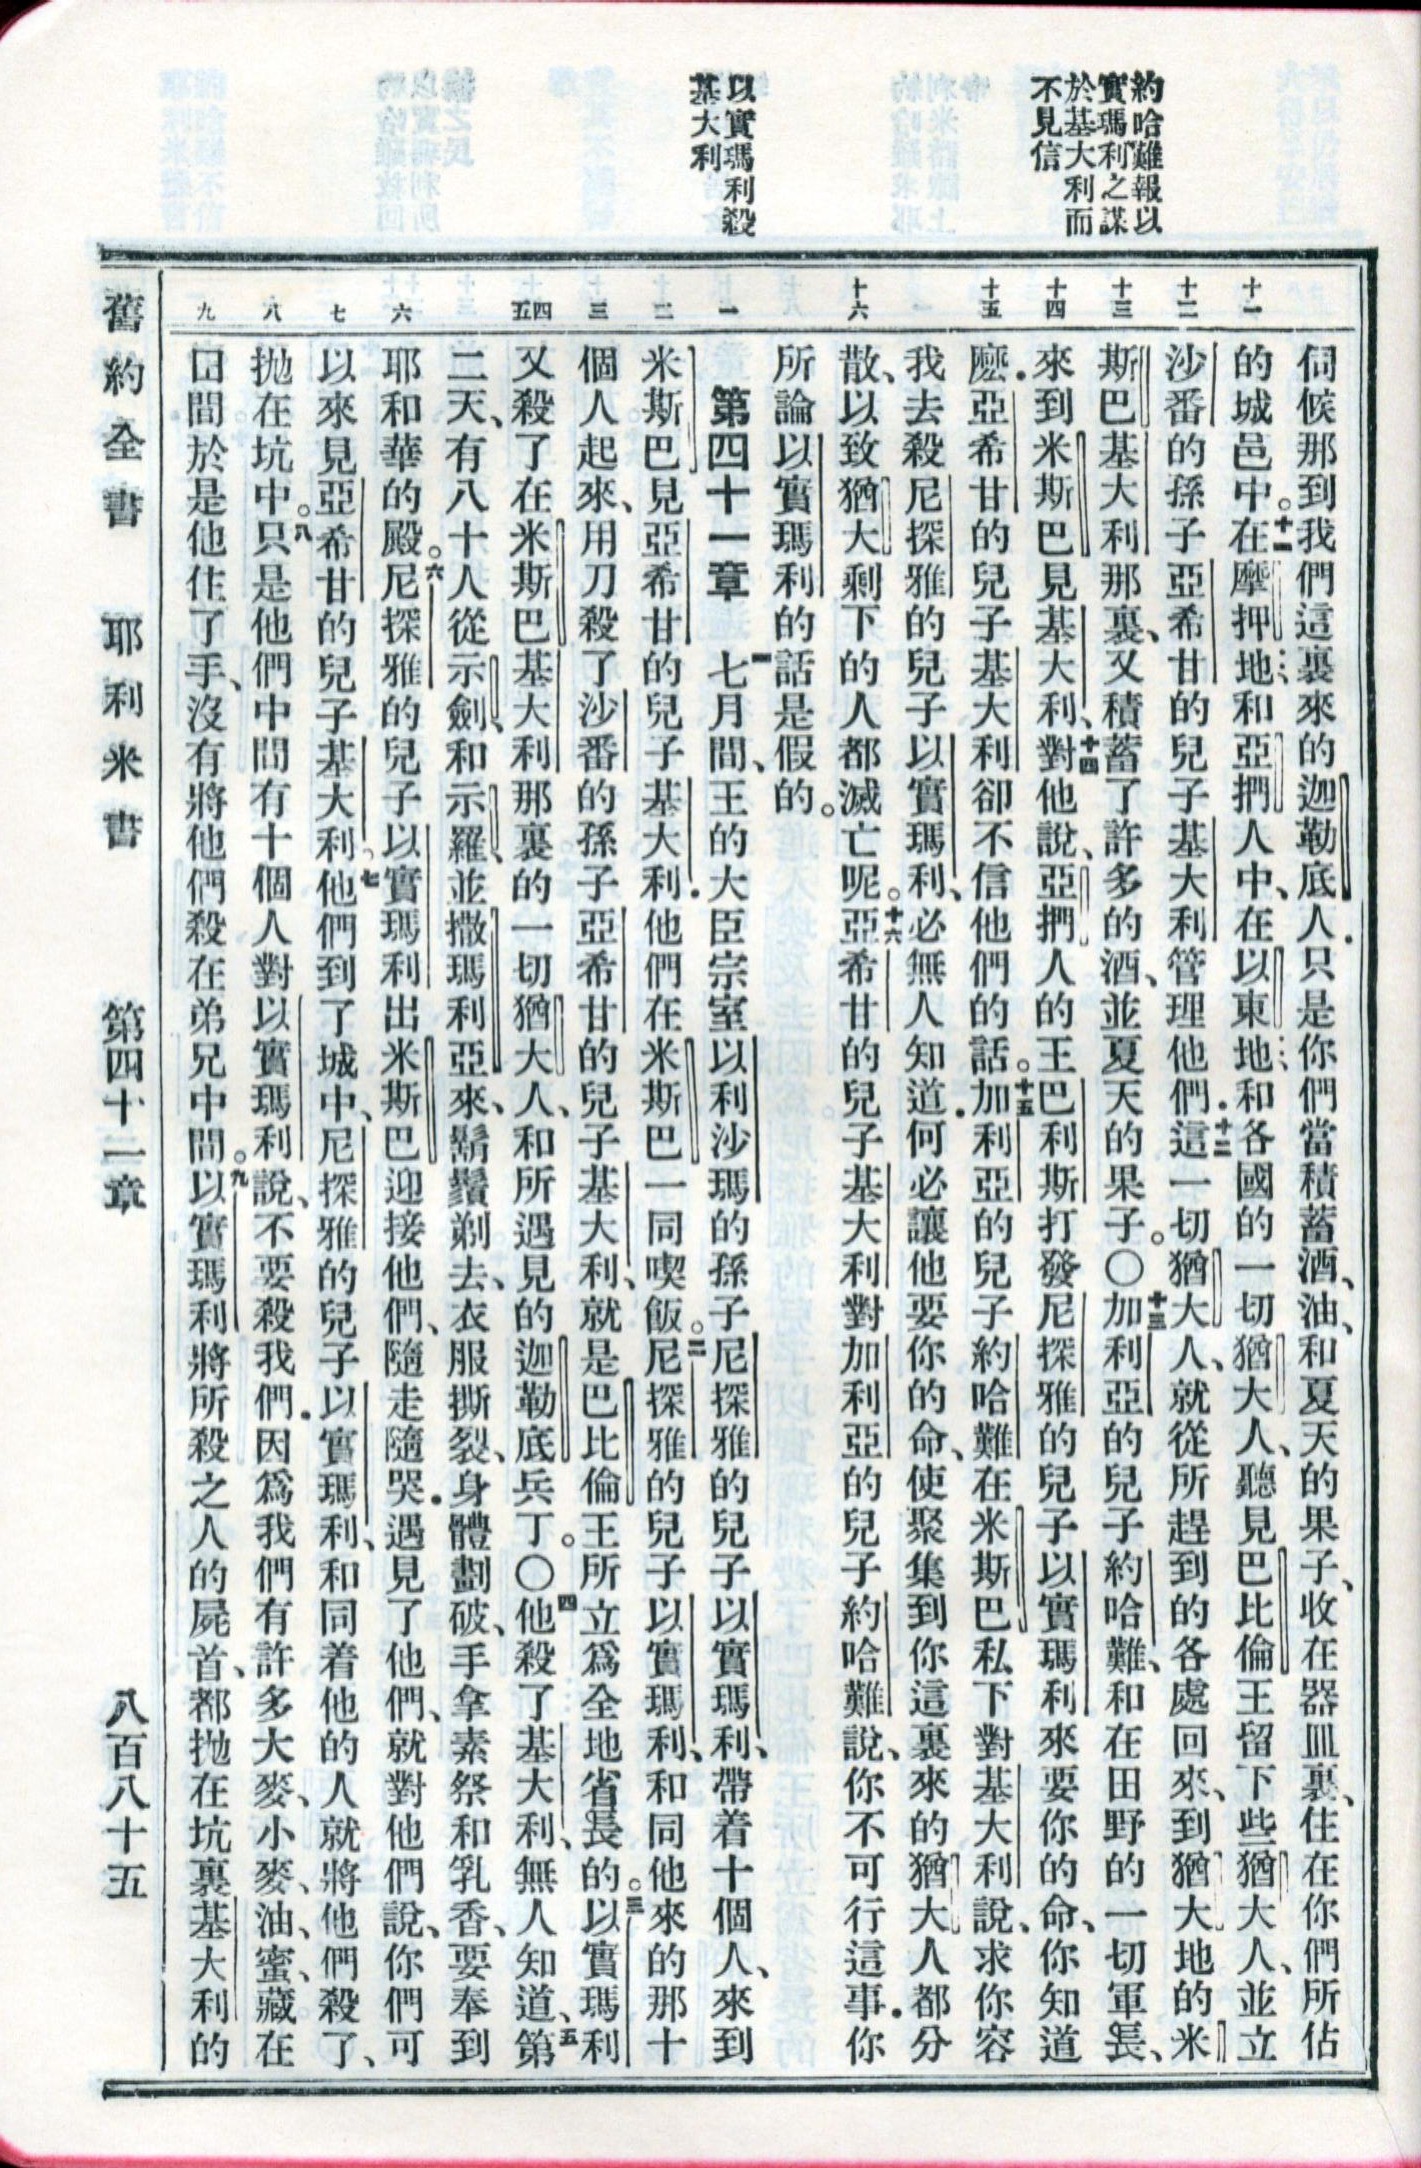 約哈難報以
實瑪利之謀
於基大利而
不見信
以實瑪利殺
基大利
十一
十二
十三
十四
十五
十六
一
二
三
四
五
六
七
八
九
伺候那到我們這裏來的迦勒底人．只是你們當積蓄酒、油、和夏天的果子、收在器皿裏、住在你們所佔
的城邑中。十一在摩押地、和亞捫人中、在以東地、和各國的一切猶大人、聽見巴比倫王留下些猶大人、並立
沙番的孫子亞希甘的兒子基大利管理他們．十二這一切猶大人、就從所趕到的各處回來、到猶大地的米
斯巴基大利那裏、又積蓄了許多的酒、並夏天的果子。〇十三加利亞的兒子約哈難、和在田野的一切軍長、
來到米斯巴見基大利、十四對他說、亞捫人的王巴利斯打發尼探雅的兒子以實瑪利來要你的命、你知道
麼．亞希甘的兒子基大利卻不信他們的話。十五加利亞的兒子約哈難在米斯巴私下對基大利說、求你容
我去殺尼探雅的兒子以實瑪利、必無人知道．何必讓他要你的命、使聚集到你這裏來的猶大人都分
散、以致猶大剩下的人都滅亡呢。十六亞希甘的兒子基大利對加利亞的兒子約哈難說、你不可行這事．你
所論以實瑪利的話是假的。
第四十一章 一七月間、王的大臣宗室以利沙瑪的孫子尼探雅的兒子以實瑪利、帶着十個人、來到
米斯巴見亞希甘的兒子基大利．他們在米斯巴一同喫飯。二尼探雅的兒子以實瑪利、和同他來的那十
個人起來、用刀殺了沙番的孫子亞希甘的兒子基大利、就是巴比倫王所立爲全地省長的。三以實瑪利
又殺了在米斯巴基大利那裏的一切猶大人、和所遇見的迦勒底兵丁。〇四他殺了基大利、無人知道、五第
二天、有八十人從示劍、和示羅、並撒瑪利亞來、鬍鬚剃去、衣服撕裂、身體劃破、手拿素祭和乳香、要奉到
耶和華的殿。六尼探雅的兒子以實瑪利出米斯巴迎接他們、隨走隨哭．遇見了他們、就對他們說、你們可
以來見亞希甘的兒子基大利。七他們到了城中、尼探雅的兒子以實瑪利、和同着他的人就將他們殺了、
抛在坑中。八只是他們中間有十個人對以實瑪利說、不要殺我們．因爲我們有許多大麥、小麥、油、蜜、藏在
田間於是他住了手、沒有將他們殺在弟兄中間。九以實瑪利將所殺之人的屍首、都抛在坑裏基大利的
舊約全書 耶利米書 第四十一章 八百八十五